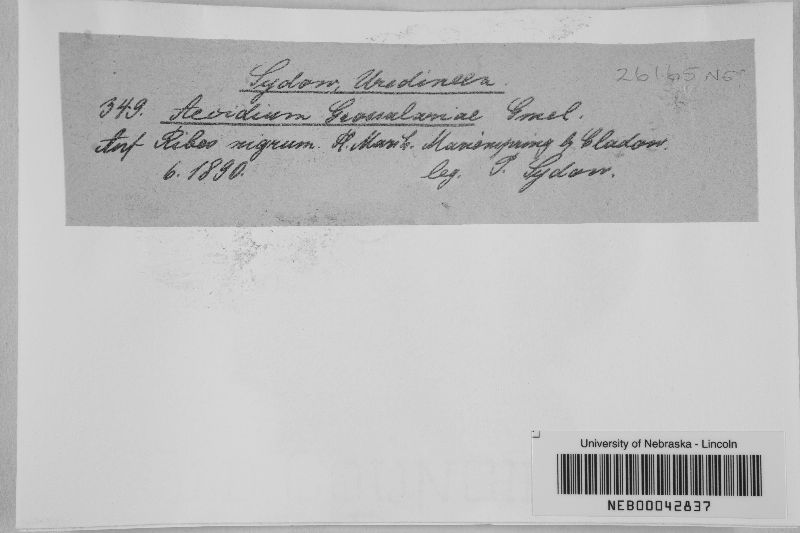 Sydow, Uredineen.
26165 NE
349. Aecidium Grossulariae Gmel.
Auf Ribes nigrum. P. Mark. b. Cladow.
6. 1890. leg. P. Sydow.
University of Nebraska - Lincoln
NEB00042837